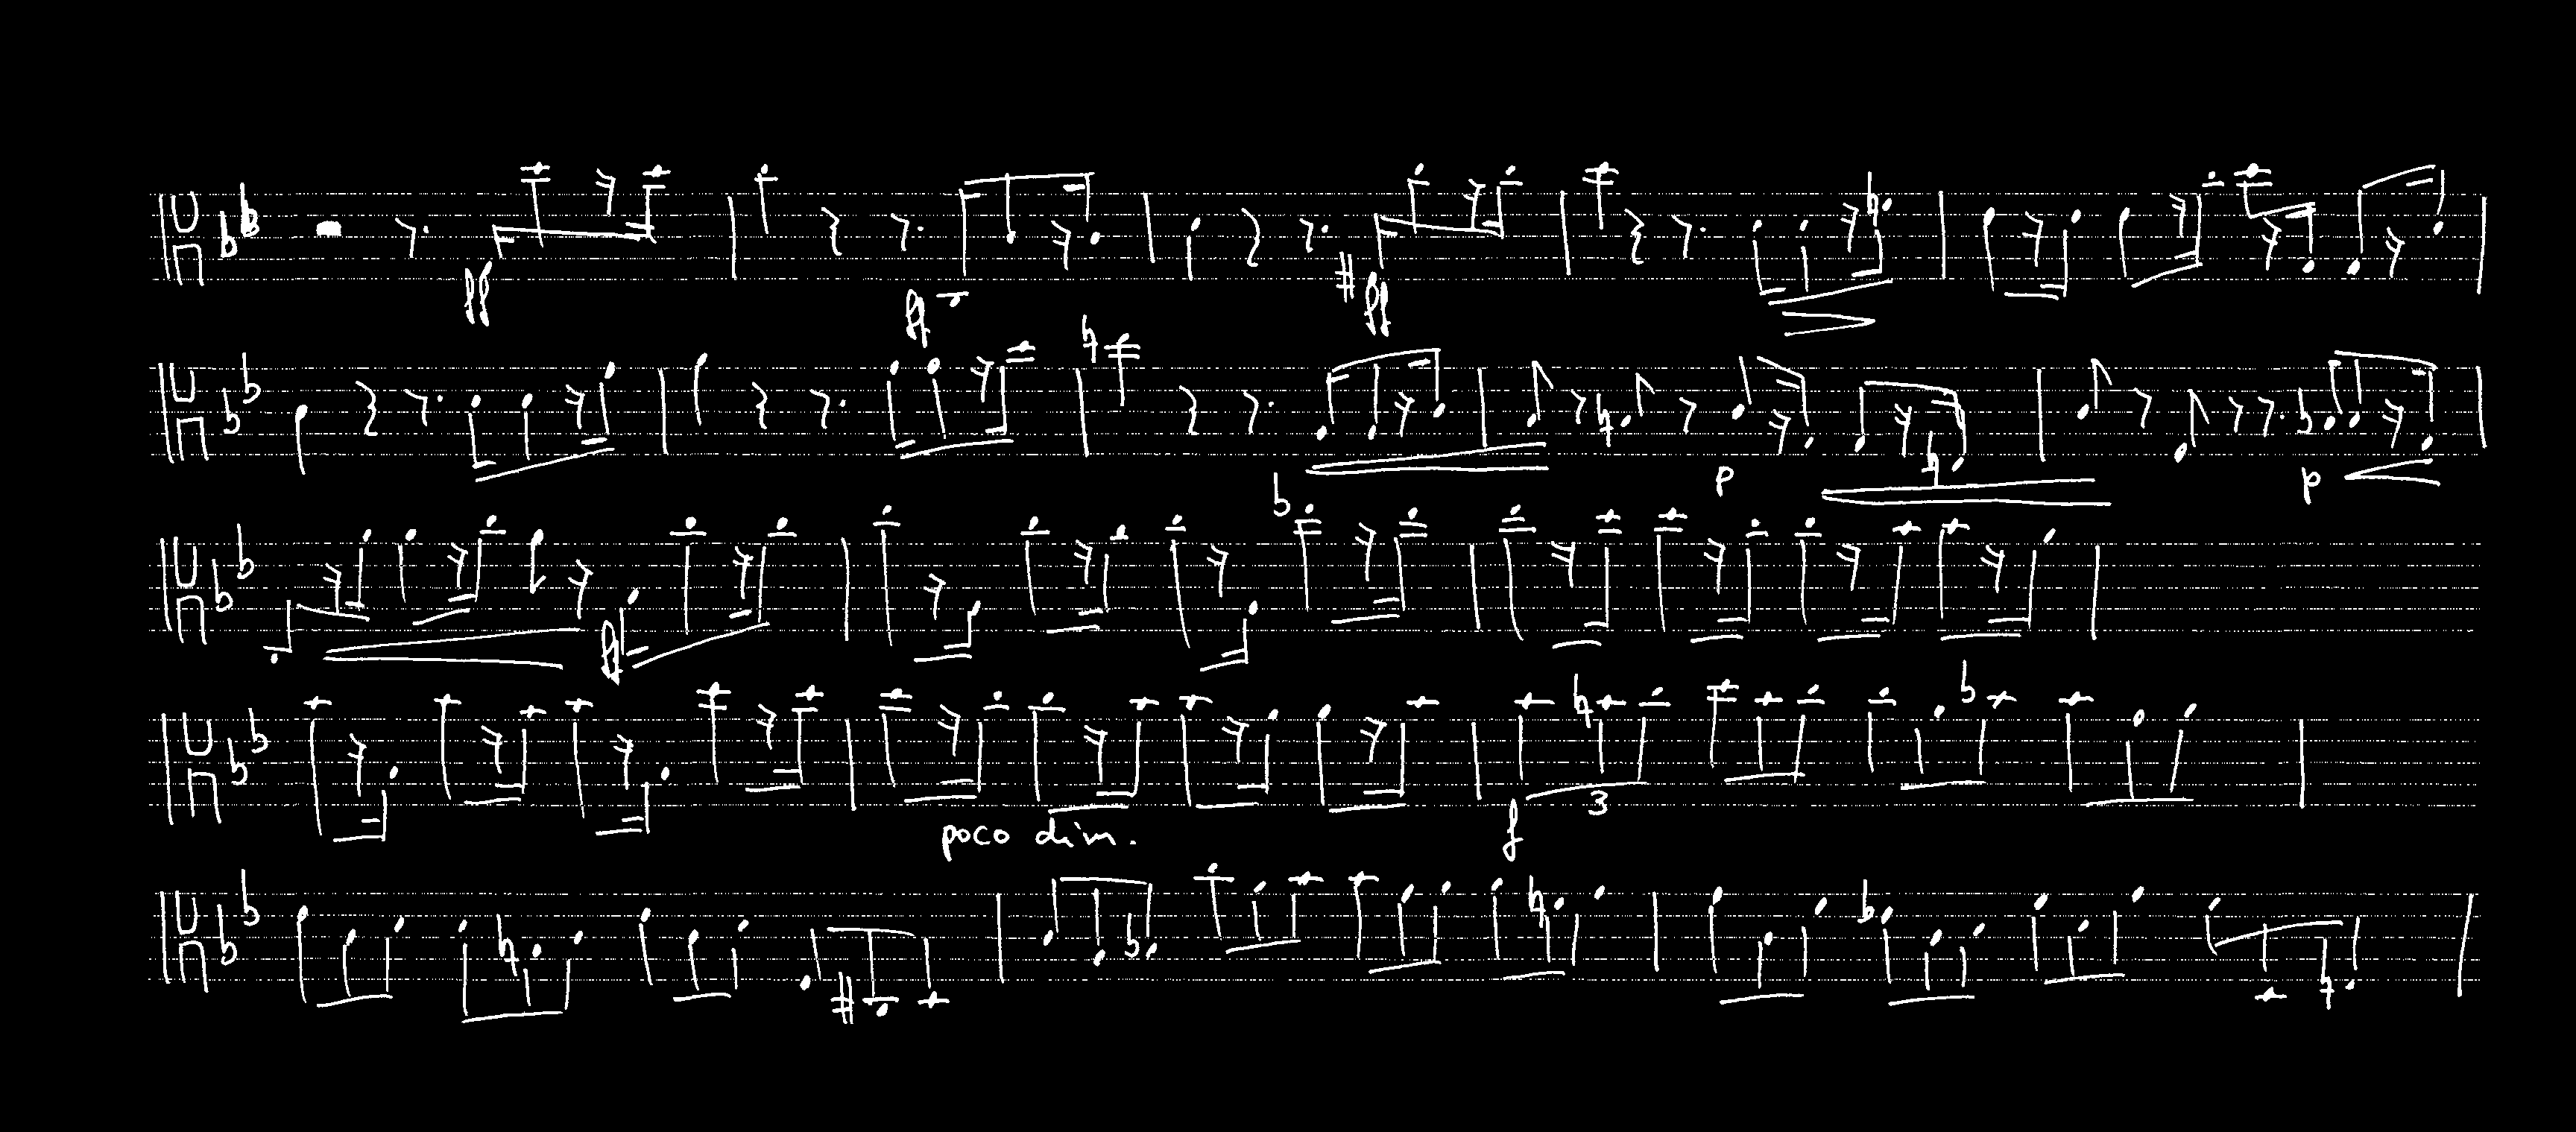 ff ff ff
p p
ff
poco dim. f 3